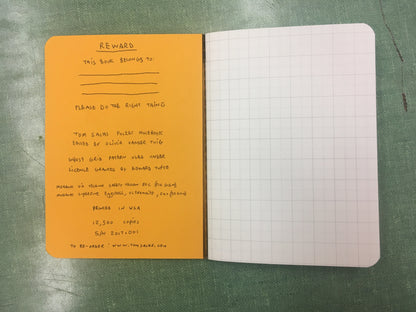 REWARD
THIS BOOK BELONGS TO:
PLEASE DO THE RIGHT THING
TOM SACHS POCKET NOTEBOOK
EDITED BY OLIVIA VANDER TUIG
GHOST GRID PATTERN USED UNDER
LICENSE GRANTED BY EDWARD TUFTE
PRINTED IN USA
12,500 COPIES
S/N 2017.001
TO RE-ORDER: WWW.TOMSACHS.COM